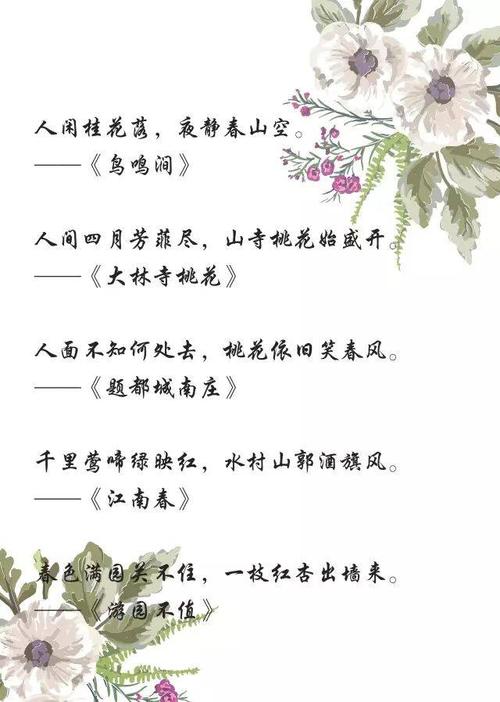 人闲桂花落，夜静春山空。
——《鸟鸣涧》
人间四月芳菲尽，山寺桃花始盛开。
——《大林寺桃花》
人面不知何处去，桃花依旧笑春风。
——《题都城南庄》
千里莺啼绿映红，水村山郭酒旗风。
——《江南春》
春色满园关不住，一枝红杏出墙来。
——《游园不值》